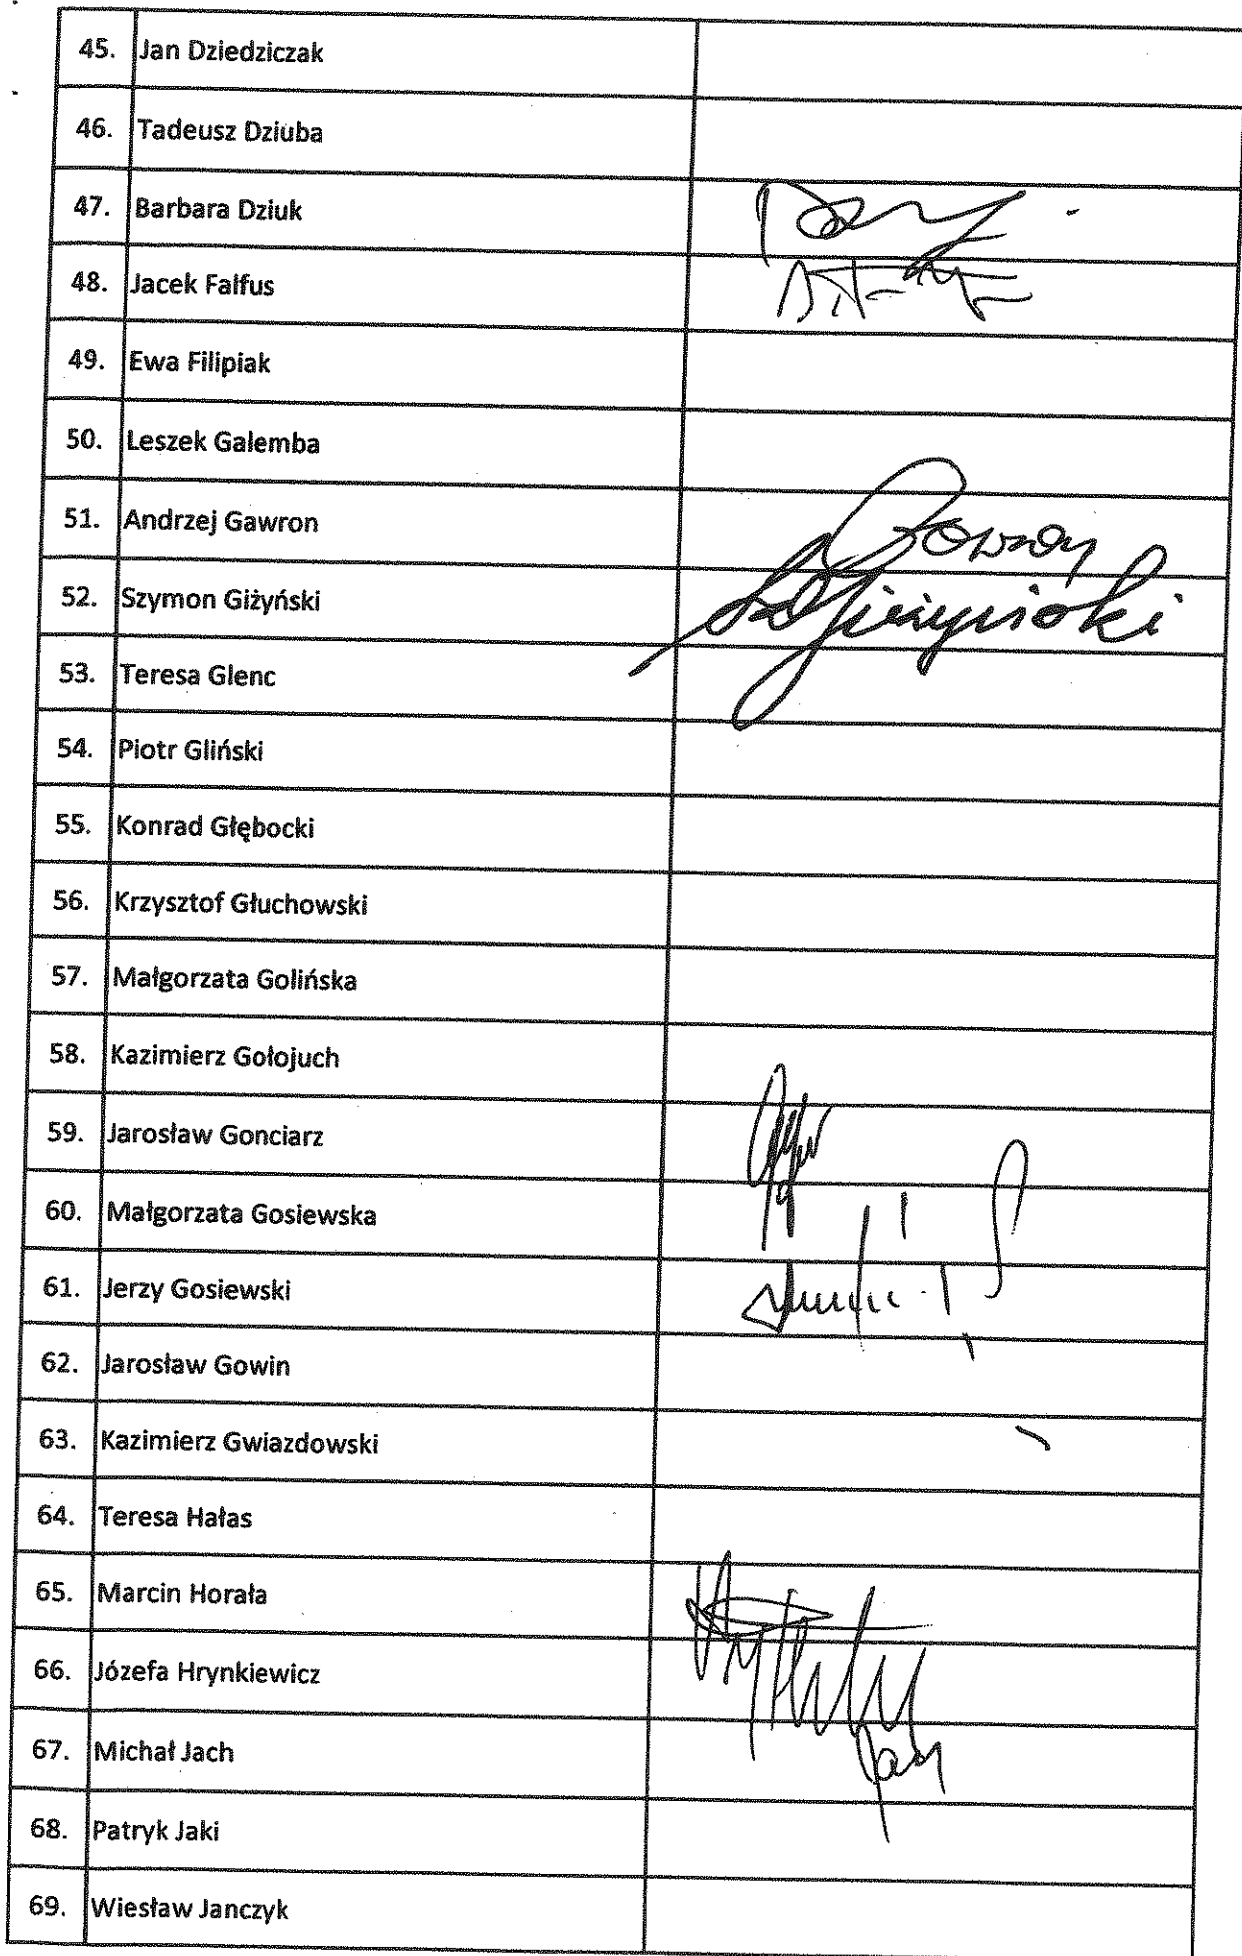 45. Jan Dziedziczak
46. Tadeusz Dziuba
47. Barbara Dziuk
48. Jacek Falfus
49. Ewa Filipiak
50. Leszek Galemba
51. Andrzej Gawron Gawron
52. Szymon Giżyński Sz Giżyński
53. Teresa Glenc
54. Piotr Gliński
55. Konrad Głębocki
56. Krzysztof Głuchowski
57. Małgorzata Golińska
58. Kazimierz Gołojuch
59. Jarosław Gonciarz
60. Małgorzata Gosiewska
61. Jerzy Gosiewski
62. Jarosław Gowin
63. Kazimierz Gwiazdowski
64. Teresa Hałas
65. Marcin Horała
66. Józefa Hrynkiewicz
67. Michał Jach Jach
68. Patryk Jaki
69. Wiesław Janczyk